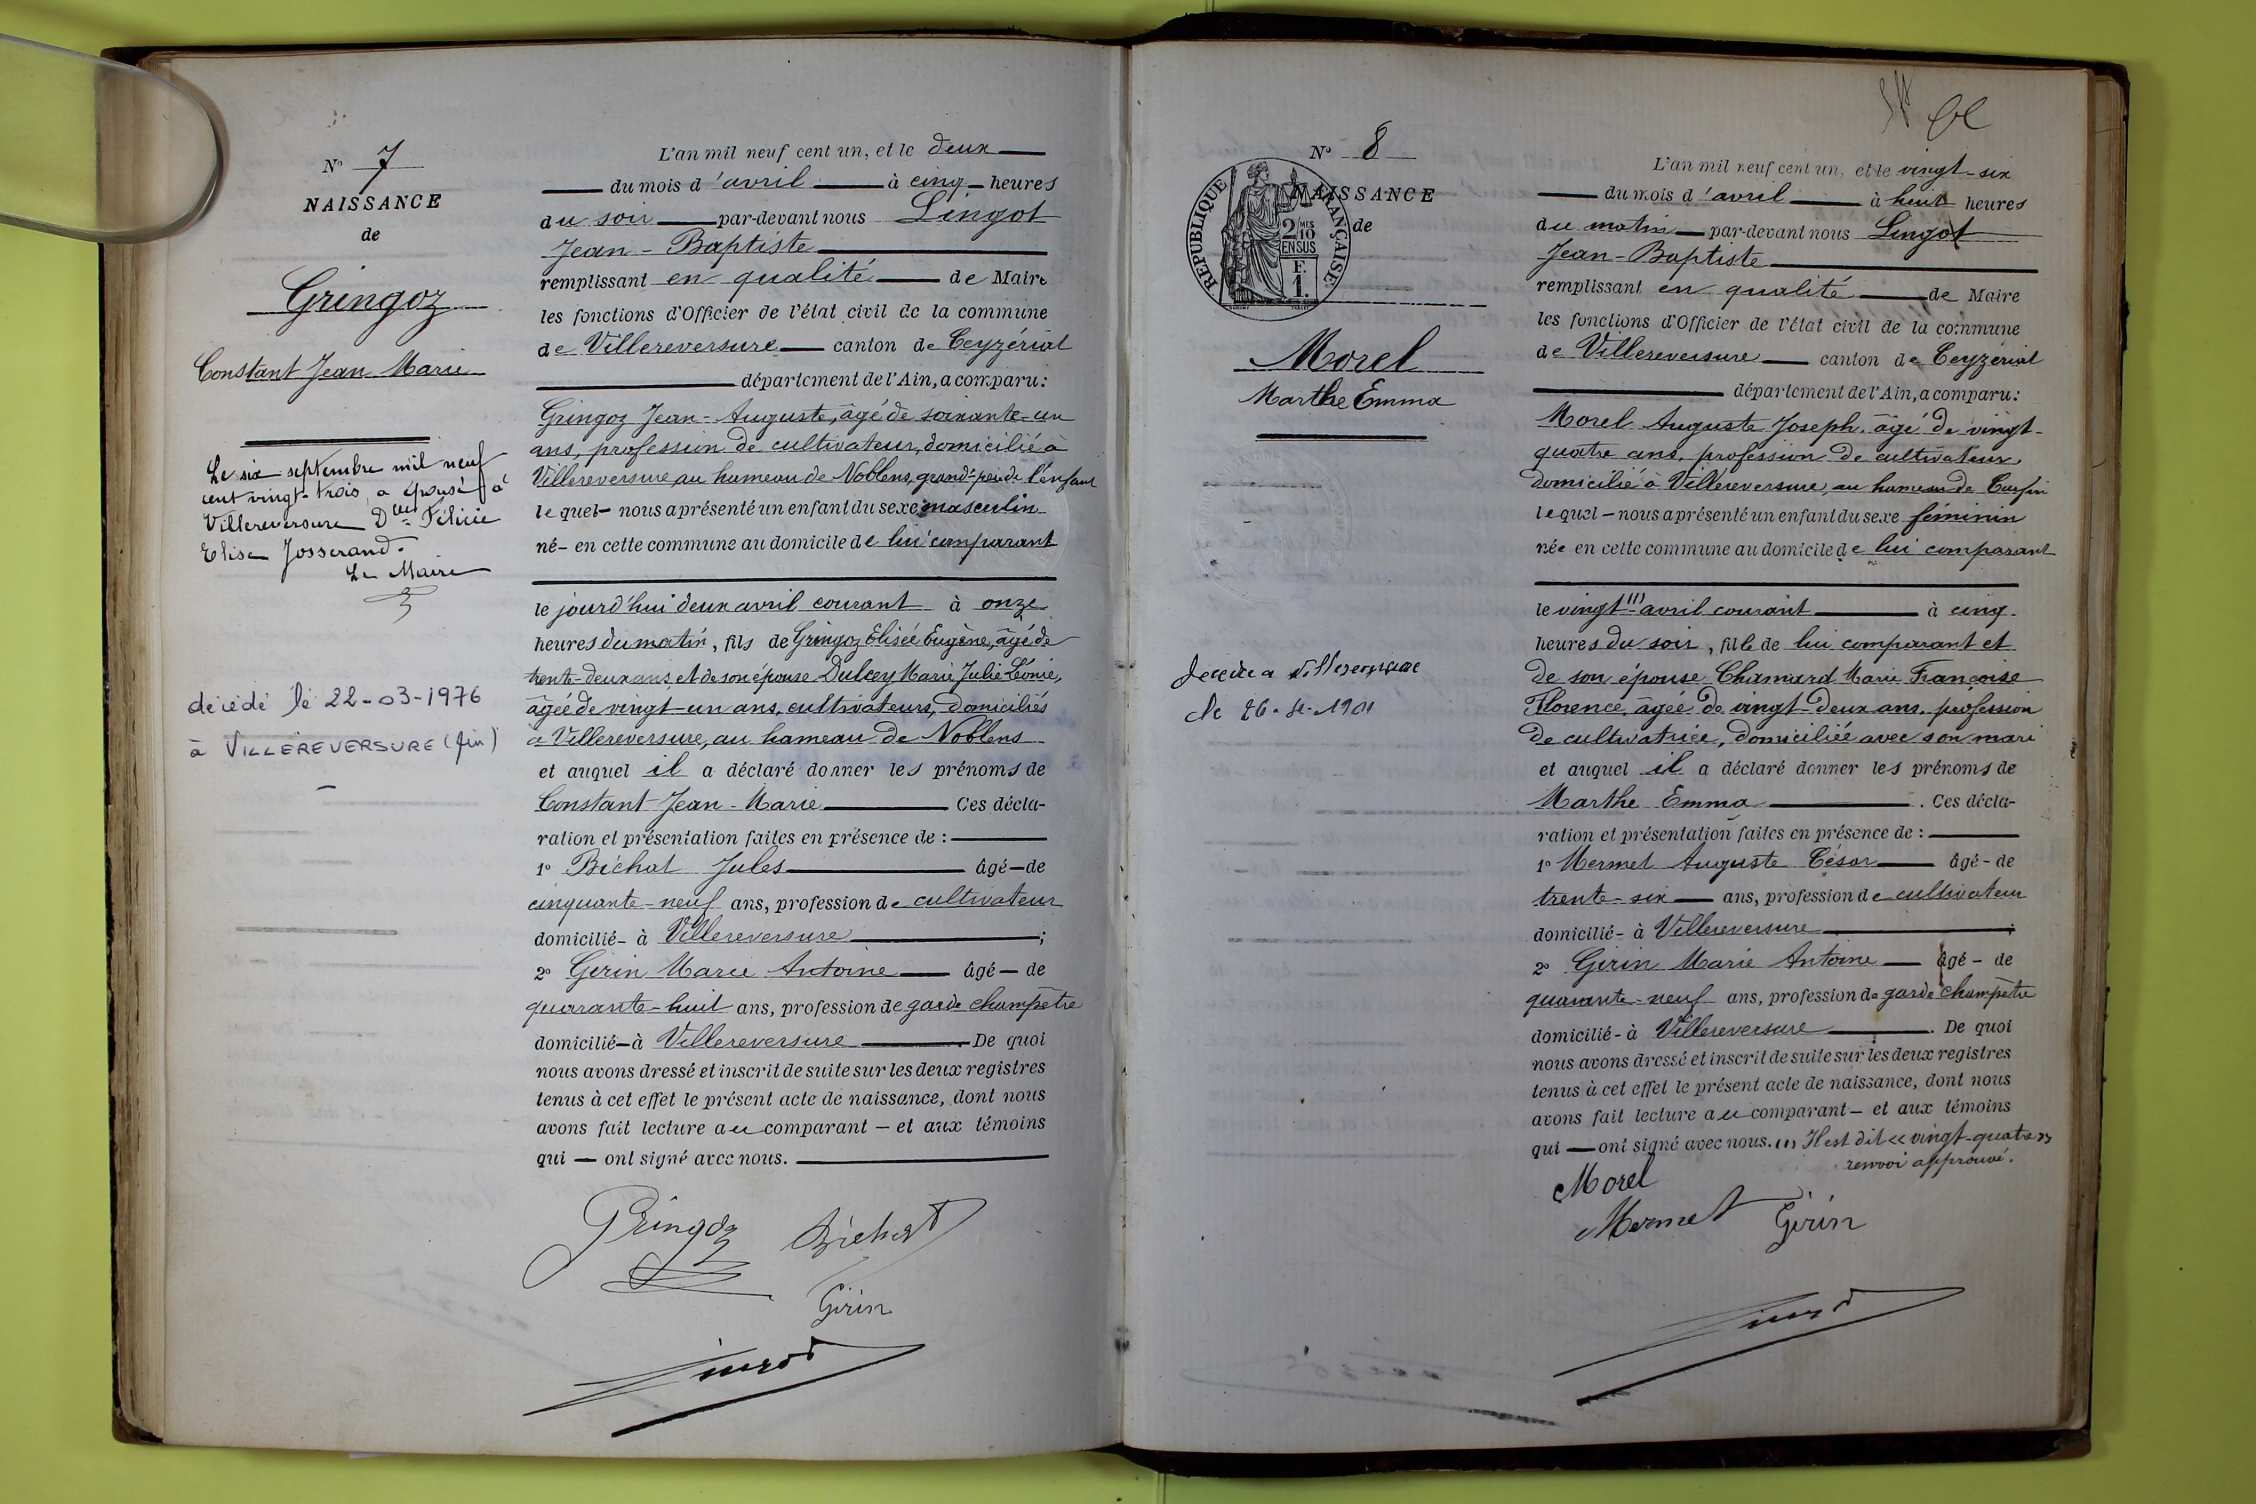 N° 7
NAISSANCE
de
Gringoz
Constant Jean Marie
Le six septembre mil neuf
cent vingt-trois, a épousé à
Villereversure Dlle Félicie
Elisa Josserand.
Le Maire
décédé le 22-03-1976
à VILLEREVERSURE (Ain)
L'an mil neuf cent un, et le deux
du mois d'avril à cinq heures
du soir par-devant nous Lingot
Jean-Baptiste
remplissant en qualité de Maire
les fonctions d'Officier de l'état civil de la commune
de Villereversure canton de Ceyzériat
département de l'Ain, a comparu:
Gringoz Jean-Auguste, âgé de soixante-un
ans, profession de cultivateur, domicilié à
Villereversure au hameau de Noblens, grand-père de l'enfant
lequel nous a présenté un enfant du sexe masculin
né en cette commune au domicile de lui comparant
le jourd'hui deux avril courant à onze
heures du matin, fils de Gringoz Elisée Eugène, âgé de
trente-deux ans et de son épouse Dulcey Marie Julie Léonie,
âgée de vingt-un ans, cultivateurs, domiciliés
à Villereversure, au hameau de Noblens
et auquel il a déclaré donner les prénoms de
Constant Jean-Marie Ces décla-
ration et présentation faites en présence de :
1° Bichat Jules âgé de
cinquante-neuf ans, profession de cultivateur
domicilié à Villereversure ;
2° Girin Marie Antoine âgé de
quarante-huit ans, profession de garde champêtre
domicilié à Villereversure. De quoi
nous avons dressé et inscrit de suite sur les deux registres
tenus à cet effet le présent acte de naissance, dont nous
avons fait lecture au comparant et aux témoins
qui ont signé avec nous.
Gringoz Bichat
Girin
Lingot
N° 8
NAISSANCE
de
REPUBLIQUE FRANÇAISE
2/10MES
EN SUS
F.
1.
Morel
Marthe Emma
décédée a Villereversure
le 26-4-1901
L'an mil neuf cent un, et le vingt-six
du mois d'avril à huit heures
du matin par-devant nous Lingot
Jean-Baptiste
remplissant en qualité de Maire
les fonctions d'Officier de l'état civil de la commune
de Villereversure canton de Ceyzériat
département de l'Ain, a comparu:
Morel Auguste Joseph, âgé de vingt-
quatre ans, profession de cultivateur,
domicilié à Villereversure, au hameau de
lequel nous a présenté un enfant du sexe féminin
née en cette commune au domicile de lui comparant
le vingt (1) avril courant à cinq
heures du soir, fille de lui comparant et
de son épouse Chanard Marie Françoise
Florence, âgée de vingt-deux ans, profession
de cultivatrice, domiciliée avec son mari
et auquel il a déclaré donner les prénoms de
Marthe Emma. Ces décla-
ration et présentation faites en présence de :
1° Mermet Auguste César âgé de
trente-six ans, profession de cultivateur
domicilié à Villereversure ;
2° Girin Marie Antoine âgé de
quarante-neuf ans, profession de garde champêtre
domicilié à Villereversure. De quoi
nous avons dressé et inscrit de suite sur les deux registres
tenus à cet effet le présent acte de naissance, dont nous
avons fait lecture au comparant et aux témoins
qui ont signé avec nous. (1) Il est dit « vingt-quatre »
renvoi approuvé.
Morel
Mermet Girin
Lingot